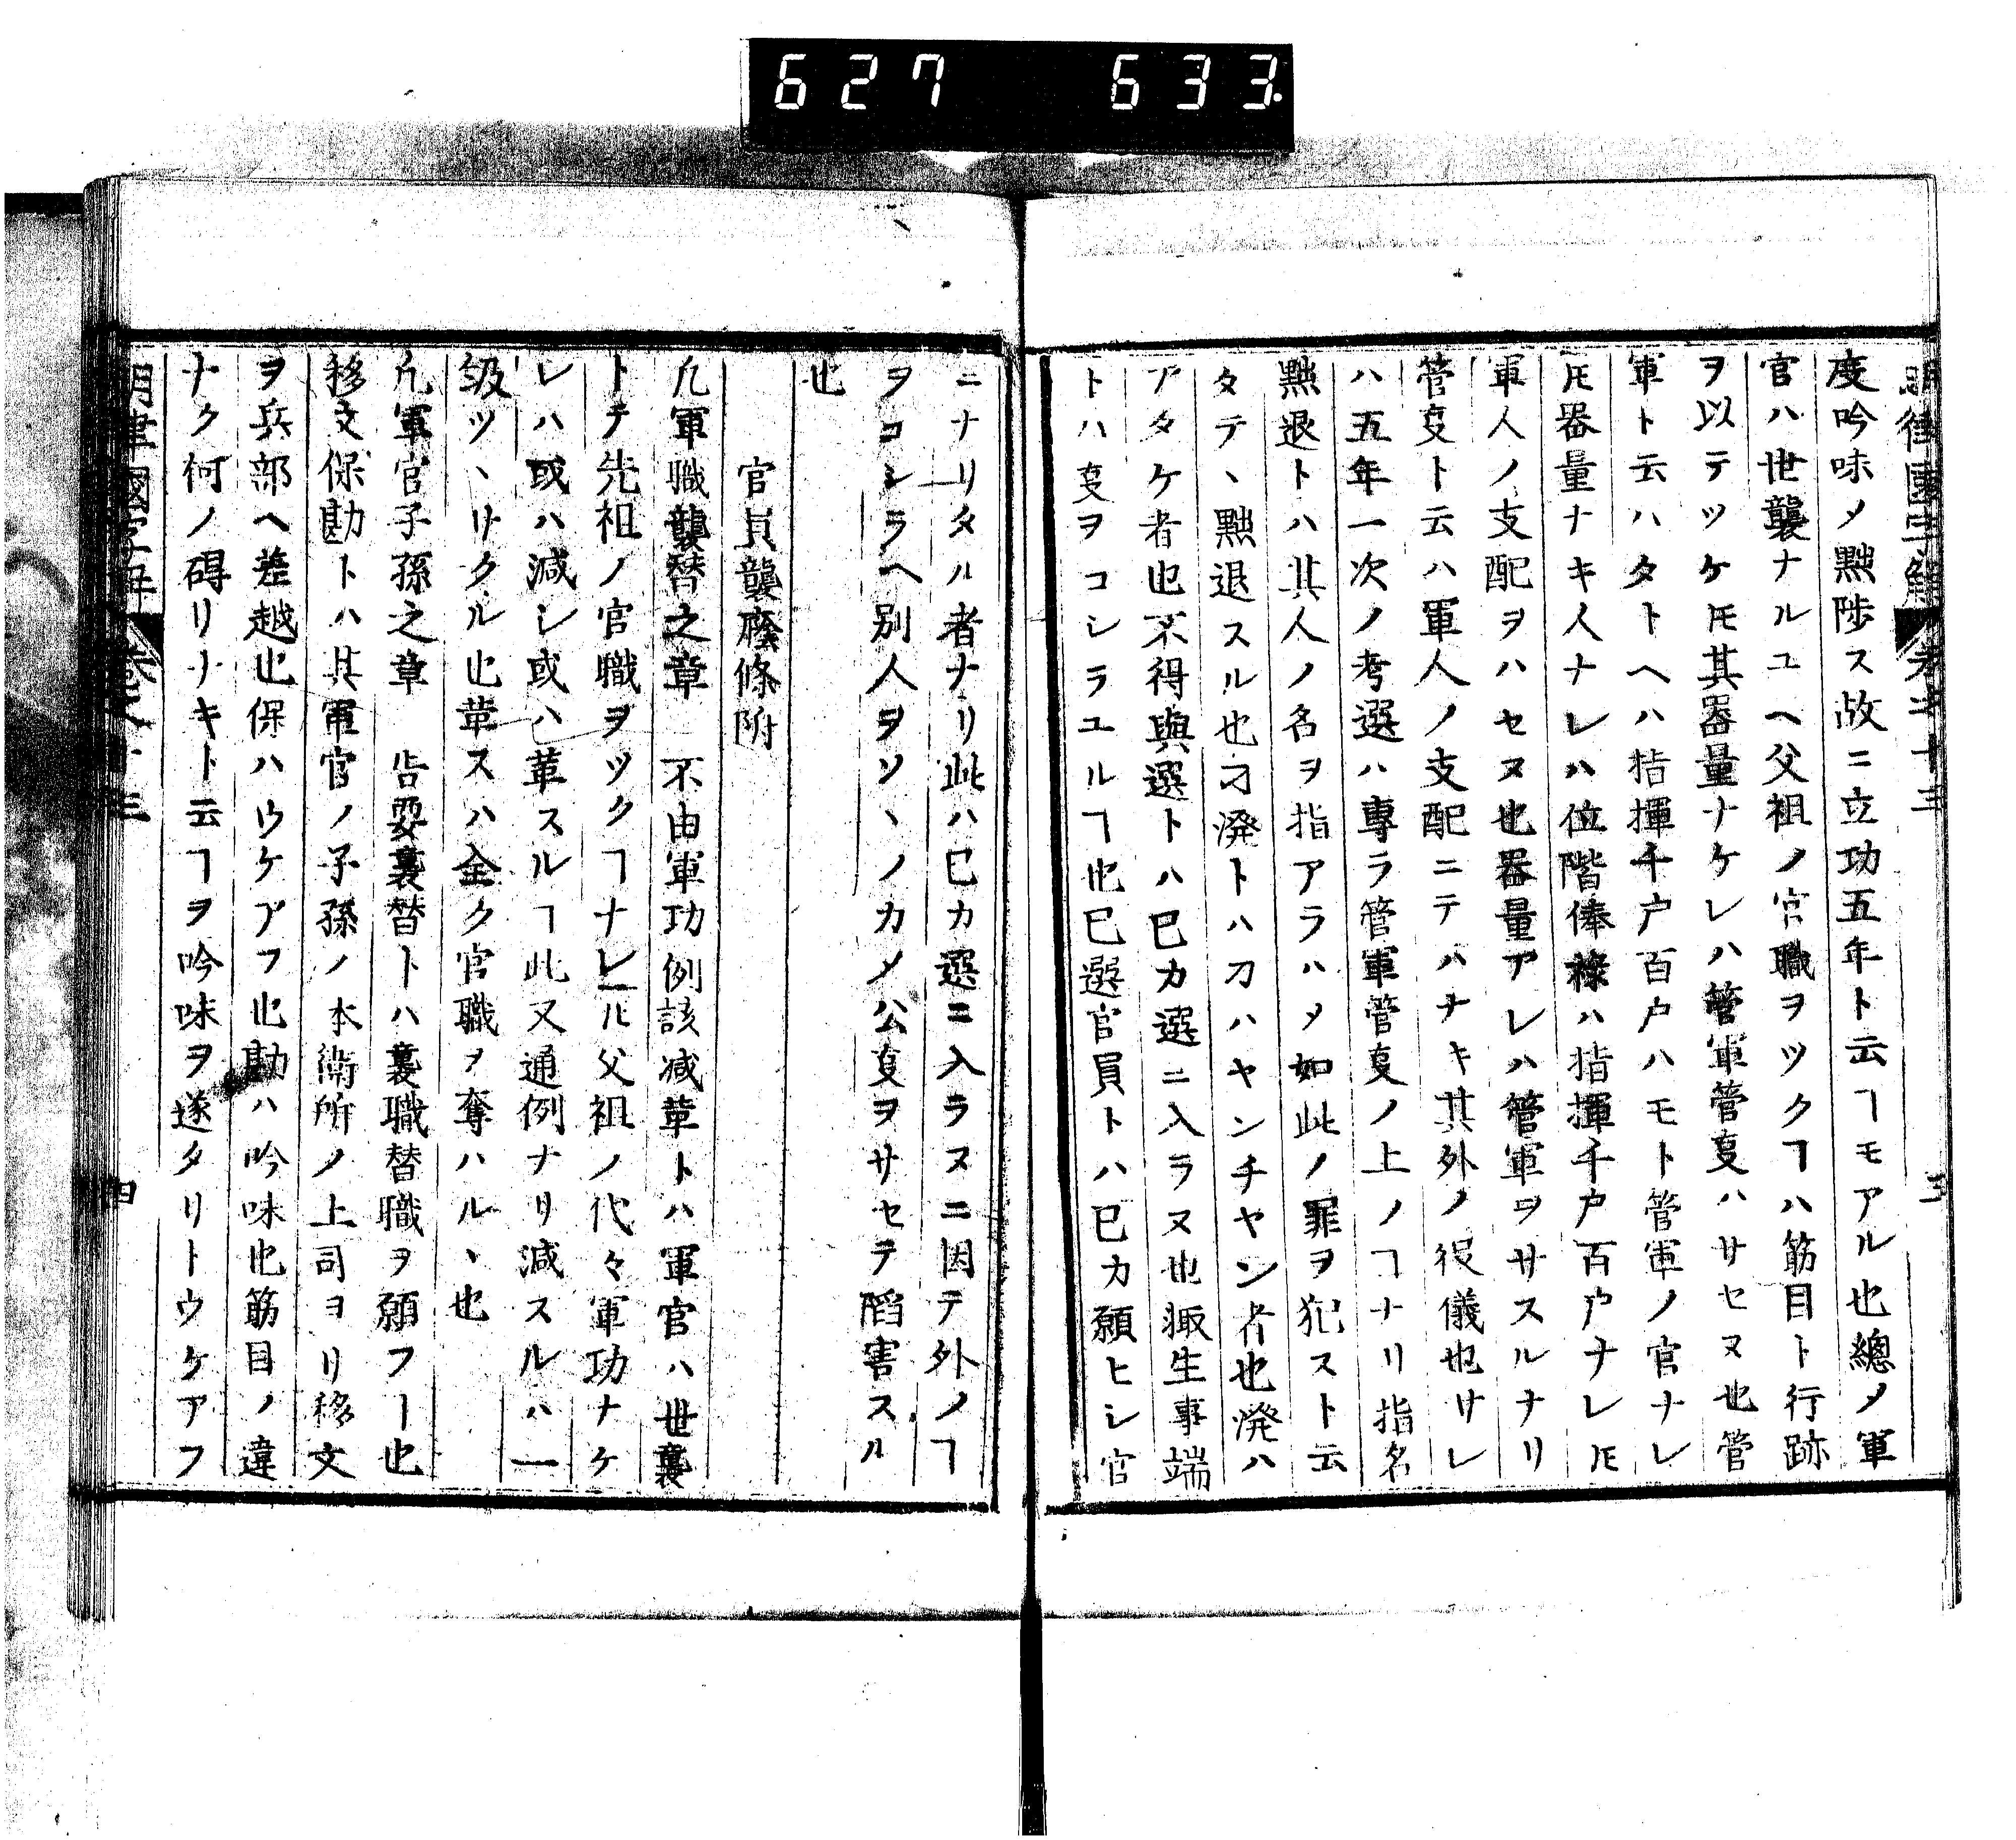 627 633
明律國字解 卷之十三 三
度吟味メ黜陟ス故ニ立功五年ト云ヿモアル也總ノ軍
官ハ世襲ナルユヘ父祖ノ官職ヲツクヿハ筋目ト行跡
ヲ以テツケ𪜈其器量ナケレハ管軍管㕝ハサセヌ也管
軍ト云ハタトヘハ指揮千戸百戸ハモト管軍ノ官ナレ
𪜈器量ナキ人ナレハ位階俸祿ハ指揮千戸百戸ナレ𪜈
軍人ノ支配ヲハセヌ也器量アレハ管軍ヲサスルナリ
管㕝ト云ハ軍人ノ支配ニテハナキ其外ノ役儀也サレ
ハ五年一次ノ考選ハ專ラ管軍管㕝ノ上ノヿナリ指名
黜退トハ其人ノ名ヲ指アラハメ如此ノ罪ヲ犯スト云
タテヽ黜退スル也刁潑トハ刀ハヤンチヤン者也潑ハ
アタケ者也不得與選トハ已カ選ニ入ラヌ也掫生事端
トハ㕝ヲコシラユルヿ也已選官員トハ已カ願ヒシ官
ニナリタル者ナリ此ハ已カ選ニ入ラヌニ因テ外ノヿ
ヲコシラヘ別人ヲソヽノカメ公㕝ヲサセテ陷害スル
也
官員襲廕條附
凢軍職襲替之章 不由軍功例該減革トハ軍官ハ世襲
トテ先祖ノ官職ヲツクヿナレ𪜈父祖ノ代々軍功ナケ
レハ或ハ減シ或ハ革スルヿ此又通例ナリ減スルハ一
級ツヽサクル也革スハ全ク官職ヲ奪ハルヽ也
凢軍官子孫之章 告要襲替トハ襲職替職ヲ願フー也
移文保勘トハ其軍官ノ子孫ノ本衞所ノ上司ヨリ移文
ヲ兵部ヘ差越也保ハウケアフ也勘ハ吟味也筋目ノ違
ナク何ノ碍リナキト云ヿヲ吟味ヲ遂タリトウケアフ
明律國字解 卷之十三 四